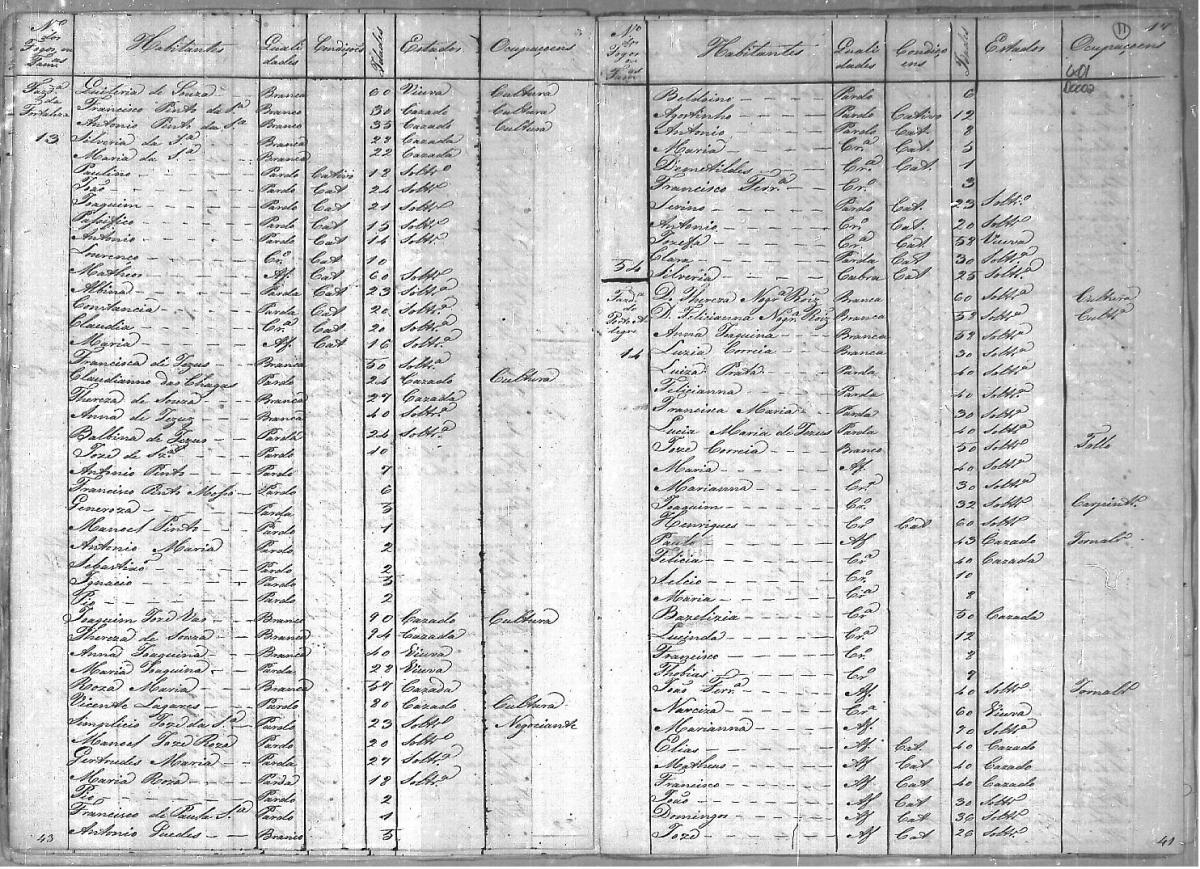 Nº dos Fogos, ou Famas | Habitantes | Qualidades | Condiçois | Idades | Estados | Ocupaçoens
Fazdª da Fortaleza | Quiteria de Souza | Branca | 60 | Viuva | Cultura
Francisco Pinto da Sª | Branco | 30 | Cazado | Cultura
Antonio Pinto da Sª | Branco | 35 | Cazado | Cultura
13 | Silveria da Sª | Branca | 28 | Cazada
Maria da Sª | Branca | 22 | Cazada
Paulino | Pardo | Cativo | 12 | Soltrº
João | Pardo | Cat | 24 | Soltrº
Joaquim | Pardo | Cat | 21 | Soltrº
Pasifico | Pardo | Cat | 15 | Soltrº
Antonio | Pardo | Cat | 14 | Soltrº
Lourenco | Crº | Cat | 10
Matheos | Af. | Cat | 60 | Soltrº
Albina | Parda | Cat | 23 | Soltrª
Constancia | Parda | Cat | 20 | Soltrª
Claudia | Crª | Cat | 20 | Soltrª
Maria | Af. | Cat | 16 | Soltrª
Francisca de Jezus | Branca | 50 | Soltrª
Claudianno das Chagas | Pardo | 24 | Cazado | Cultura
Thereza de Souza | Branca | 27 | Cazada
Anna de Jezuz | Branca | 40 | Soltrª
Balbina de Jezus | Parda | 24 | Soltrª
Joze de | Pardo | 10
Antonio Pinto | Pardo | 7
Francisco Pinto | Pardo | 6
Generoza | Parda | 3
Manoel Pinto | Pardo | 1
Antonio Maria | Pardo | 2
Sebastião | Pardo | 2
Ignacio | Pardo | 3
Pio | Pardo | 2
Joaquim Joze Vas | Branco | 90 | Cazado | Cultura
Thereza de Souza | Branca | 94 | Cazada
Anna Joaquina | Branca | 40 | Viuva
Maria Joaquina | Parda | 28 | Viuva
Roza Maria | Branca | 57 | Cazada
Vicente Lagares | Pardo | 80 | Cazado | Cultura
Simplicio Joze da Sª | Pardo | 23 | Soltrº | Negociante
Manoel Joze Roza | Pardo | 20 | Soltrº
Gertrudes Maria | Parda | 27 | Soltrª
Maria Roza | Parda | 18 | Soltrª
Pio | Pardo | 2
Francisco de Paula Sª | Pardo | 1
43 | Antonio Guedes | Branco | 5
11
Nº dos Fogos ou as Fam | Habitantes | Qualidades | Condiçoens | Idades | Estados | Ocupaçoens
Beldoino | Pardo | 6
Agostinho | Pardo | Cativo | 12
Antonio | Pardo | Cat. | 8
Maria | Crª | Cat. | 5
Dometildes | Crª | Cat. | 1
Francisco Ferrª | Crº | 3
Serino | Pardo | Cat. | 23 | Soltrº
Antonio | Crº | Cat. | 20 | Soltrº
Jozefa | Crª | Cat | 58 | Viuva
Clara | Parda | Cat | 30 | Soltrª
54 | Silveria | Cabra | Cat | 25 | Soltrª
Fazdª do Porto Alegre | D. Thereza Nogrª Roiz | Branca | 60 | Soltrª | Cultura
D. Felicianna Nogrª Roiz | Branca | 58 | Soltrª | Cultrª
Anna Joaquina | Branca | 52 | Soltrª
14 | Luzia Correia | Branca | 30 | Soltrª
Luiza Prates | Parda | 40 | Soltrª
Felicianna | Parda | 40 | Soltrª
Francisca Maria | Parda | 30 | Soltrª
Lucia Maria de Jezus | Parda | 40 | Soltrª
Joze Correia | Branco | 50 | Soltrº
Maria | Af. | 40 | Soltrª
Marianna | Crª | 30 | Soltrª
Joaquim | Crº | 32 | Soltrº | Carpintrº
Henriques | Crº | Cat | 60 | Soltrº
Paulo | Af | 43 | Cazado | Jornalrº
Felicia | Crª | 40 | Cazada
Felcio | Crº | 10
Maria | Crª | 8
Bazelizia | Crª | 50 | Cazada
Lucinda | Crª | 12
Francisco | Crº | 8
Thobias | Crº | 7
João Ferrª | Af. | 40 | Soltrº | Jornalrº
Narciza | Crª | 60 | Viuva
Marianna | Af. | 70 | Soltrª
Elias | Af | Cat. | 40 | Cazado
Matheus | Af | Cat | 40 | Cazado
Francisco | Af | Cat | 40 | Cazado
João | Af | Cat | 30 | Soltrº
Domingos | Af | Cat | 36 | Soltrº
Joze | Af | Cat | 26 | Soltrº
41